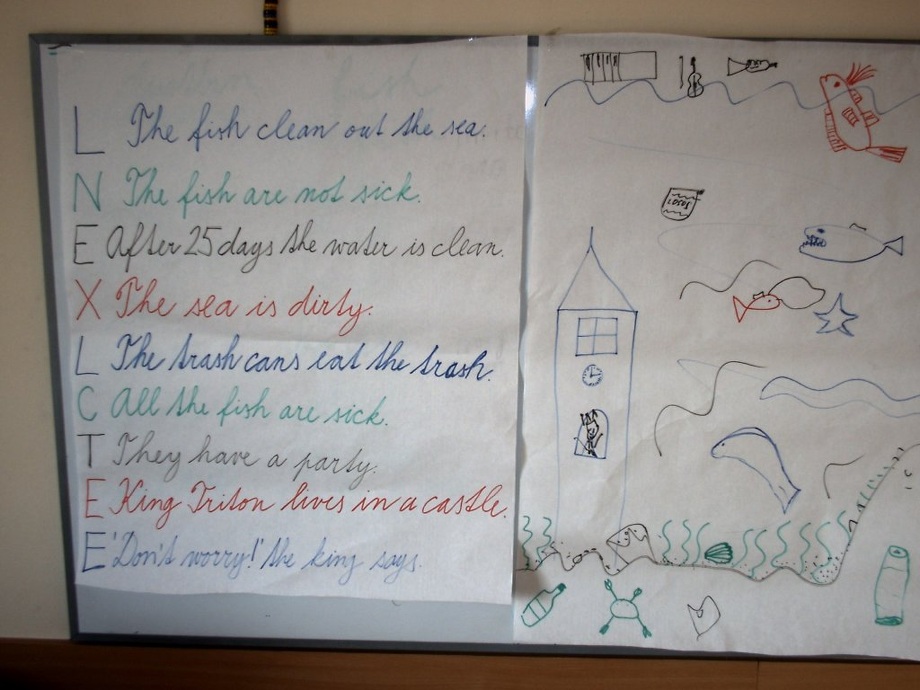 L The fish clean out the sea.
N The fish are not sick.
E After 25 days the water is clean.
X The sea is dirty.
L The trash cans eat the trash.
C All the fish are sick.
T They have a party.
E King Triton lives in a castle.
E 'Don't worry!' the king says.